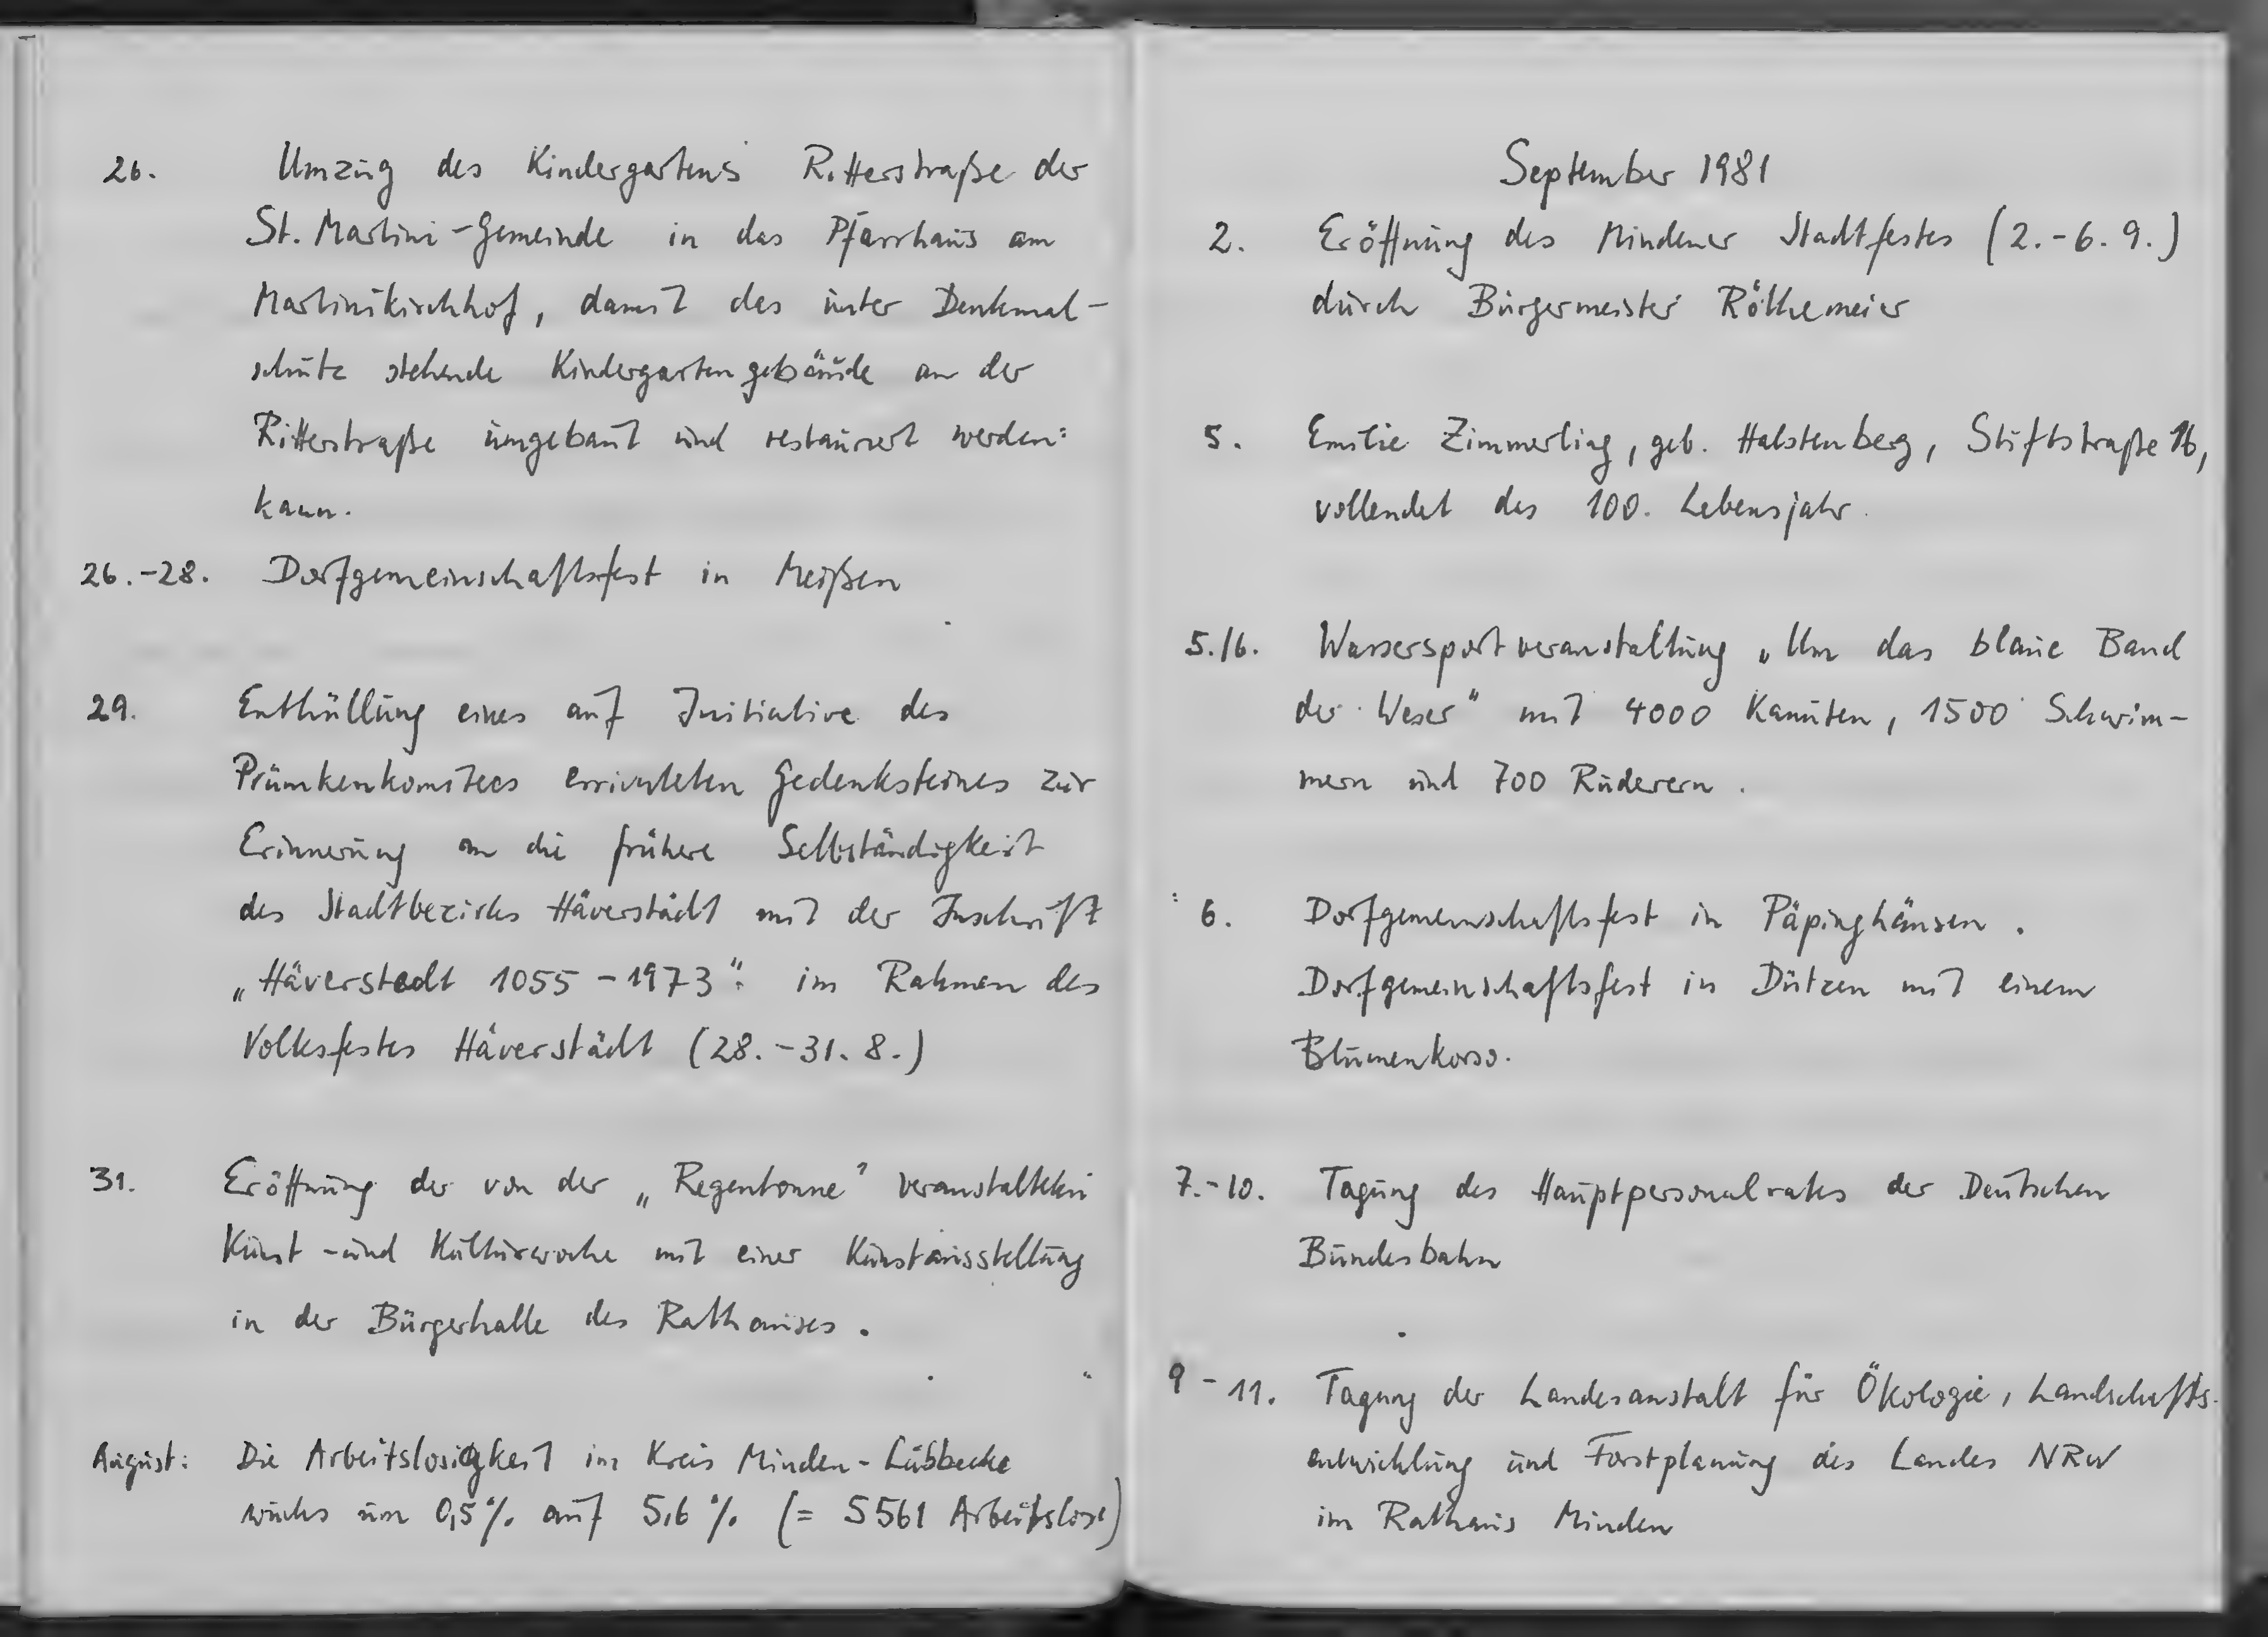 26. Umzug des Kindergartens Ritterstraße der
St. Martini-Gemeinde in das Pfarrhaus am
Martinikirchhof, damit das unter Denkmal-
schutz stehende Kindergartengebäude an der
Ritterstraße umgebaut und restauriert werden
kann.
26.-28. Dorfgemeinschaftsfest in Meißen
29. Enthüllung eines auf Initiative des
Prümkenkomitees errichteten Gedenksteines zur
Erinnerung an die frühere Selbständigkeit
des Stadtbezirks Häverstädt mit der Inschrift
„Häverstedt 1055-1973" im Rahmen des
Volksfestes Häverstädt (28.-31. 8.)
31. Eröffnung der von der „Regentonne" veranstalteten
Kunst-und Kulturwoche mit einer Kunstausstellung
in der Bürgerhalle des Rathauses.
August: Die Arbeitslosigkeit im Kreis Minden-Lübbecke
wuchs um 0,5% auf 5,6% (= 5561 Arbeitslose)
September 1981
2. Eröffnung des Mindener Stadtfestes (2.-6. 9.)
durch Bürgermeister Röthemeier
5. Emilie Zimmerling, geb. Halstenberg, Stiftstraße 16,
vollendet das 100. Lebensjahr.
5./6. Wassersportveranstaltung „Um das blaue Band
der Weser" mit 4000 Kanuten, 1500 Schwim-
mern und 700 Ruderern.
6. Dorfgemeinschaftsfest in Päpinghausen.
Dorfgemeinschaftsfest in Dützen mit einem
Blumenkorso.
7.-10. Tagung des Hauptpersonalrates der Deutschen
Bundesbahn
9-11. Tagung der Landesanstalt für Ökologie, Landschafts-
entwicklung und Forstplanung des Landes NRW
im Rathaus Minden